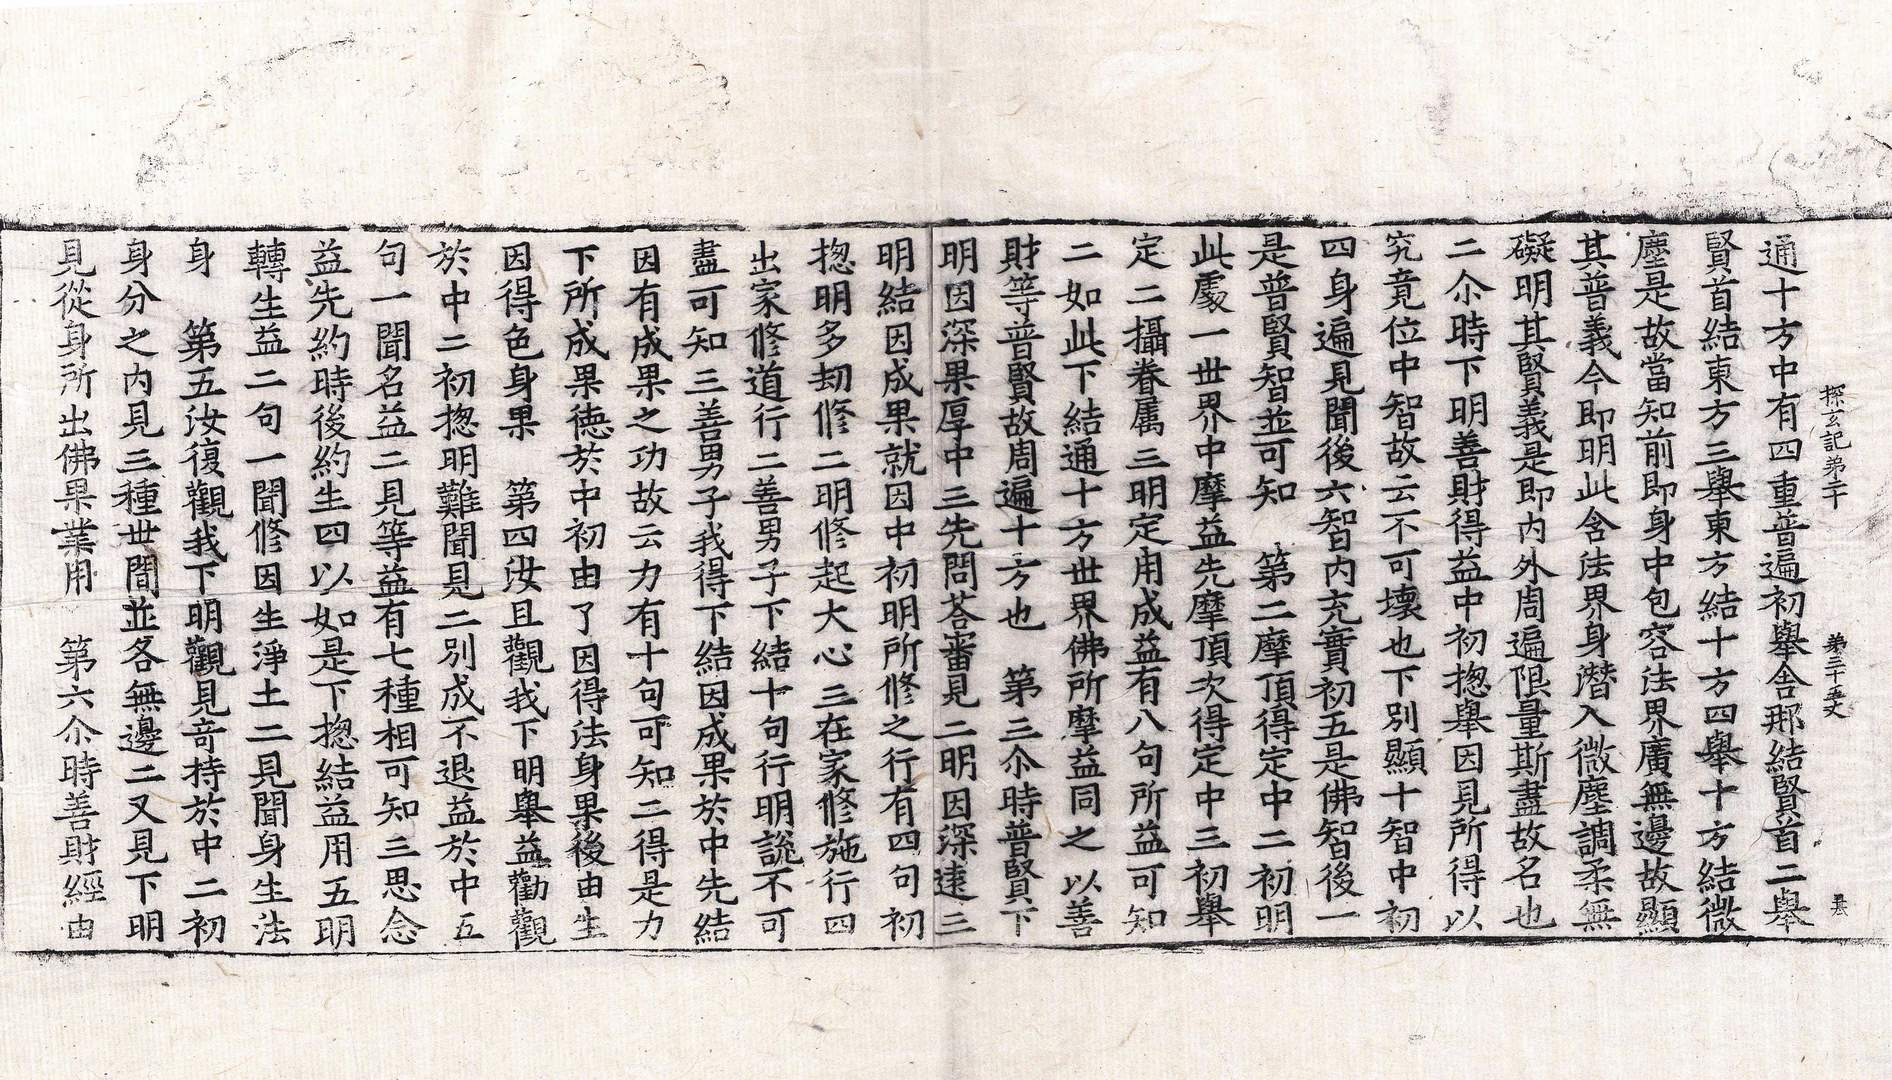 探玄記第二十 第三十五丈
通十方中有四重普遍初舉舍那結賢首二舉
賢首結東方三舉東方結十方四舉十方結微
塵是故當知前即身中包容法界廣無邊故顯
其普義今即明此含法界身潛入微塵調柔無
礙明其賢義是即內外周遍限量斯盡故名也
二尒時下明善財得益中初揔舉因見所得以
究竟位中智故云不可壞也下別顯十智中初
四身遍見聞後六智內充實初五是佛智後一
是普賢智並可知　第二摩頂得定中二初明
此處一世界中摩益先摩頂次得定中三初舉
定二攝眷屬三明定用成益有八句所益可知
二如此下結通十方世界佛所摩益同之以善
財等普賢故周遍十方也　第三尒時普賢下
明因深果厚中三先問荅審見二明因深遠三
明結因成果就因中初明所修之行有四句初
揔明多劫修二明修起大心三在家修施行四
出家修道行二善男子下結十句行明說不可
盡可知三善男子我得下結因成果於中先結
因有成果之功故云力有十句可知二得是力
下所成果德於中初由了因得法身果後由生
因得色身果　第四汝且觀我下明舉益勸觀
於中二初揔明難聞見二別成不退益於中五
句一聞名益二見等益有七種相可知三思念
益先約時後約生四以如是下揔結益用五明
轉生益二句一聞修因生淨土二見聞身生法
身　第五汝復觀我下明觀見奇持於中二初
身分之內見三種世間並各無邊二又見下明
見從身所出佛果業用　第六尒時善財經由